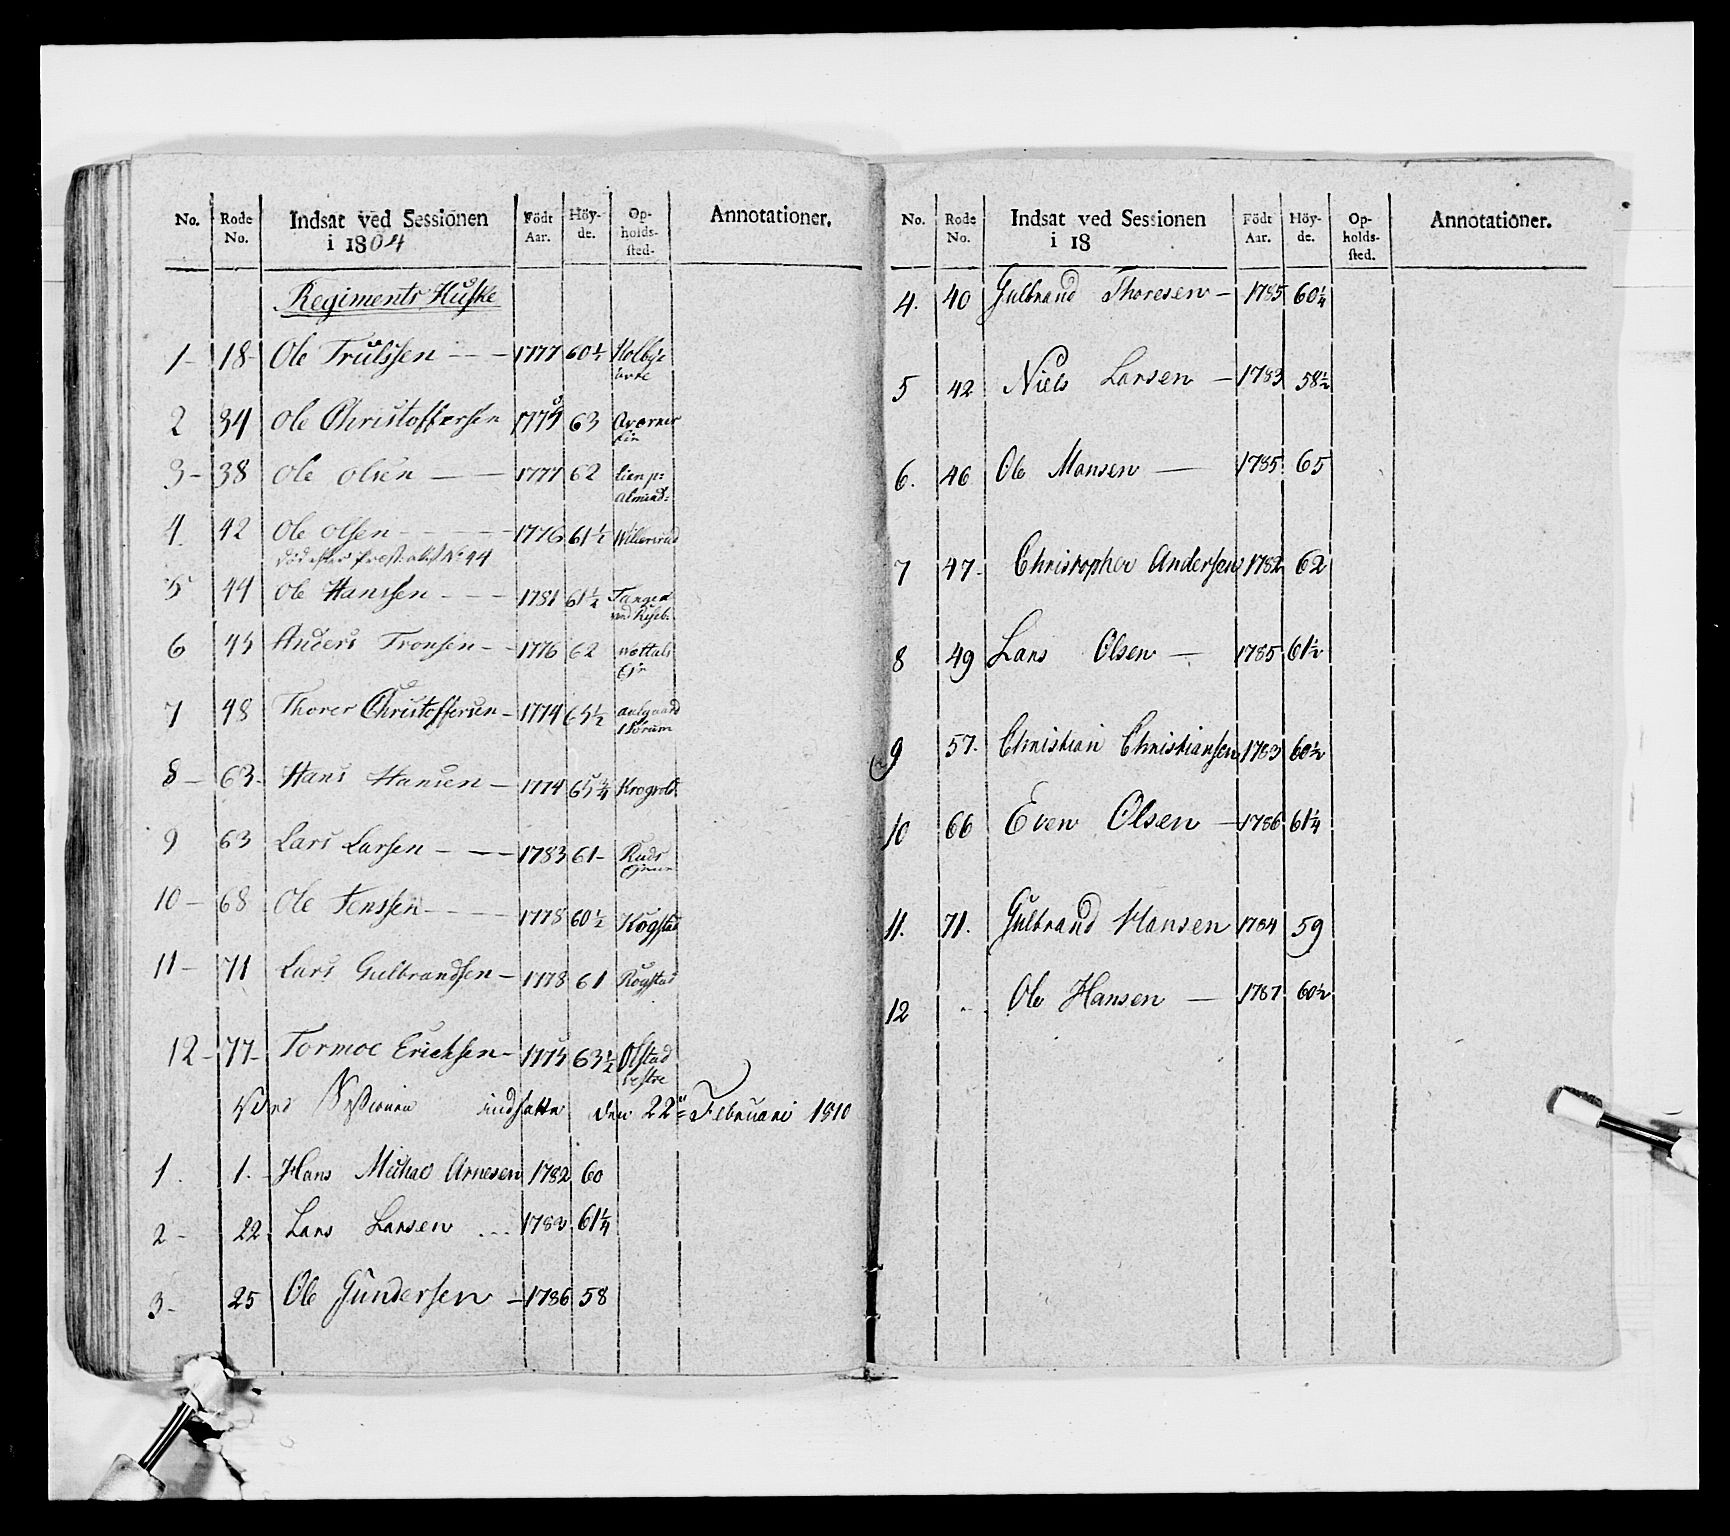 No. Rode No. Indsat ved Sessionen i 1804 Födt Aar. Höyde. Opholds-sted. Annotationer.
Regiments Huske
1 - 18 - Ole Trulssen - - - 1777 60½
2 34 Ole Christoffersen 1775 63
3 - 38 Ole Olsen - - 1777 62
4. 42 Ole Olsen - - - 1776 61½ Willersrud
No 44
5 44 Ole Hanssen - - - 1781 61½ Tangen
6 45 Anders Tronsen - - 1776 62
7 48 Thorer Christoffersen - 1774 65½
8 - 63 - Hans Hansen - 1774 65¼ Krogvold
9 63 Lars Larsen - - - 1783 61 - Ruds
10 - 68 Ole Jenssen - - - 1778 60½ Kogstad
11 - 71 Lars Gulbrandsen - 1778 61 Rogstad
12 - 77 - Tormoe Erichsen - 1775 63½ Olstad
Vestre
Ved Sessionen indsatte den 22de Februari 1810
1. 1. - Hans Michael Arnesen 1782 60
2 - 22. Lars Larsen ... 1782 61¼
3 - 25 Ole Gundersen - 1786 58
No. Rode No. Indsat ved Sessionen i 18 Födt Aar. Höyde. Opholds-sted. Annotationer.
4. 40 Gulbrand Thoresen - 1785 60¼
5 42 Niels Larsen - 1783 58½
6. 46 Ole Mansen - 1785 65
7 47. Christopher Andersen 1782 62
8 49 Lars Olsen - 1785 61½
9 57. Christian Christiansen 1783 60½
10 66 Even Olsen - 1786 61¼
11. 71. Gulbrand Hansen 1784 59
12 Ole Hansen - 1787 60½